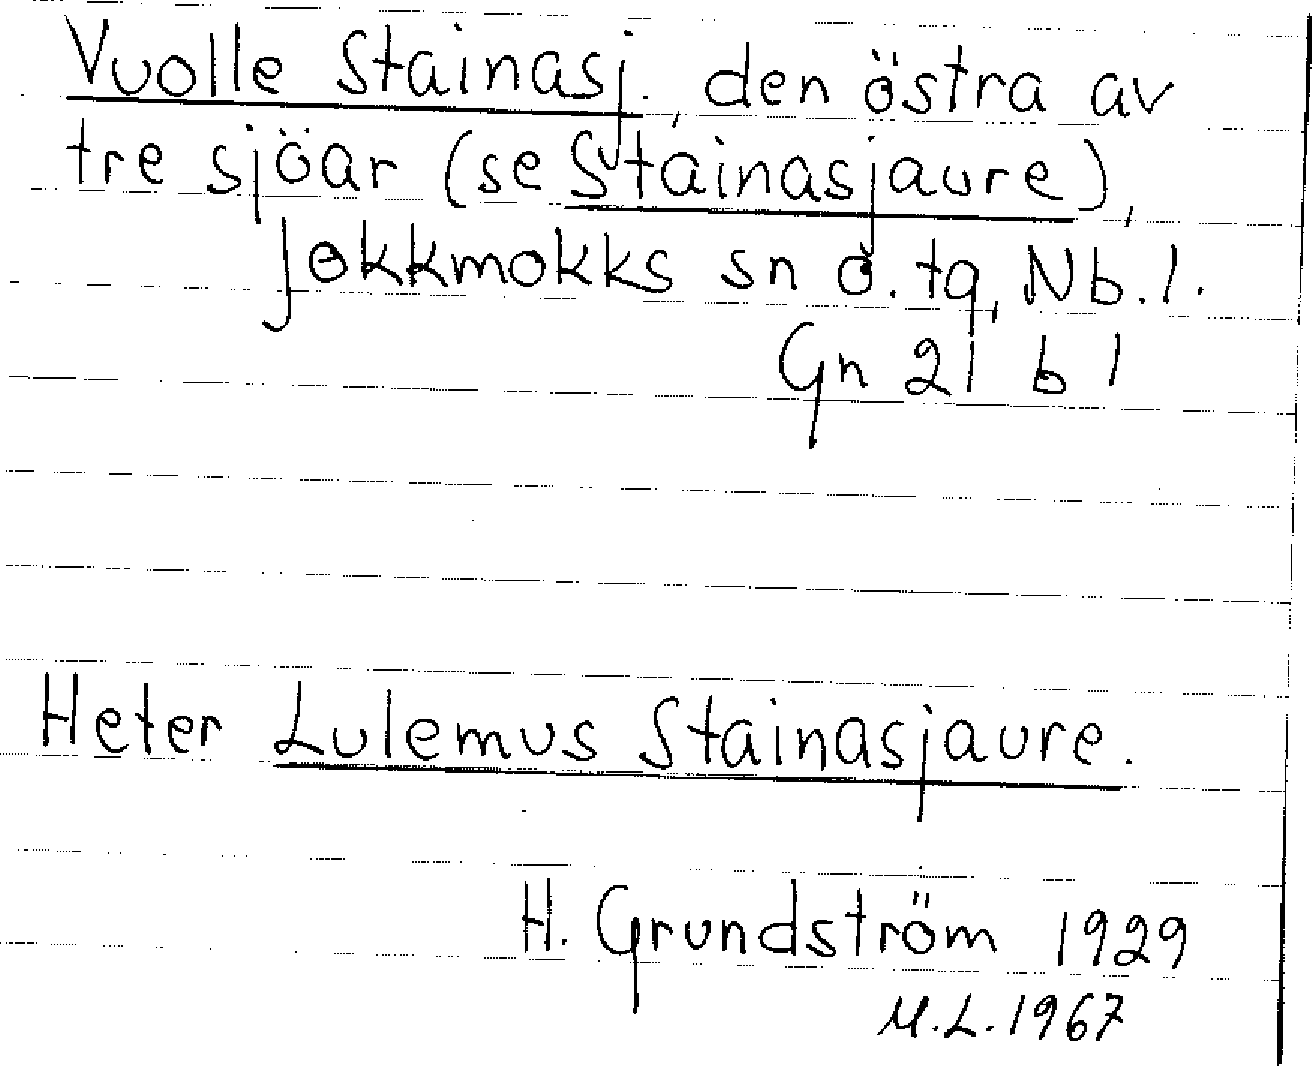 Vuolle Stainasj., den östra av
tre sjöar (se Stainasjaure),
Jokkmokks sn o. tg, Nb. l.
Gn 21 b 1
Heter Lulemus Stainasjaure.
H. Grundström 1929
M.L. 1967